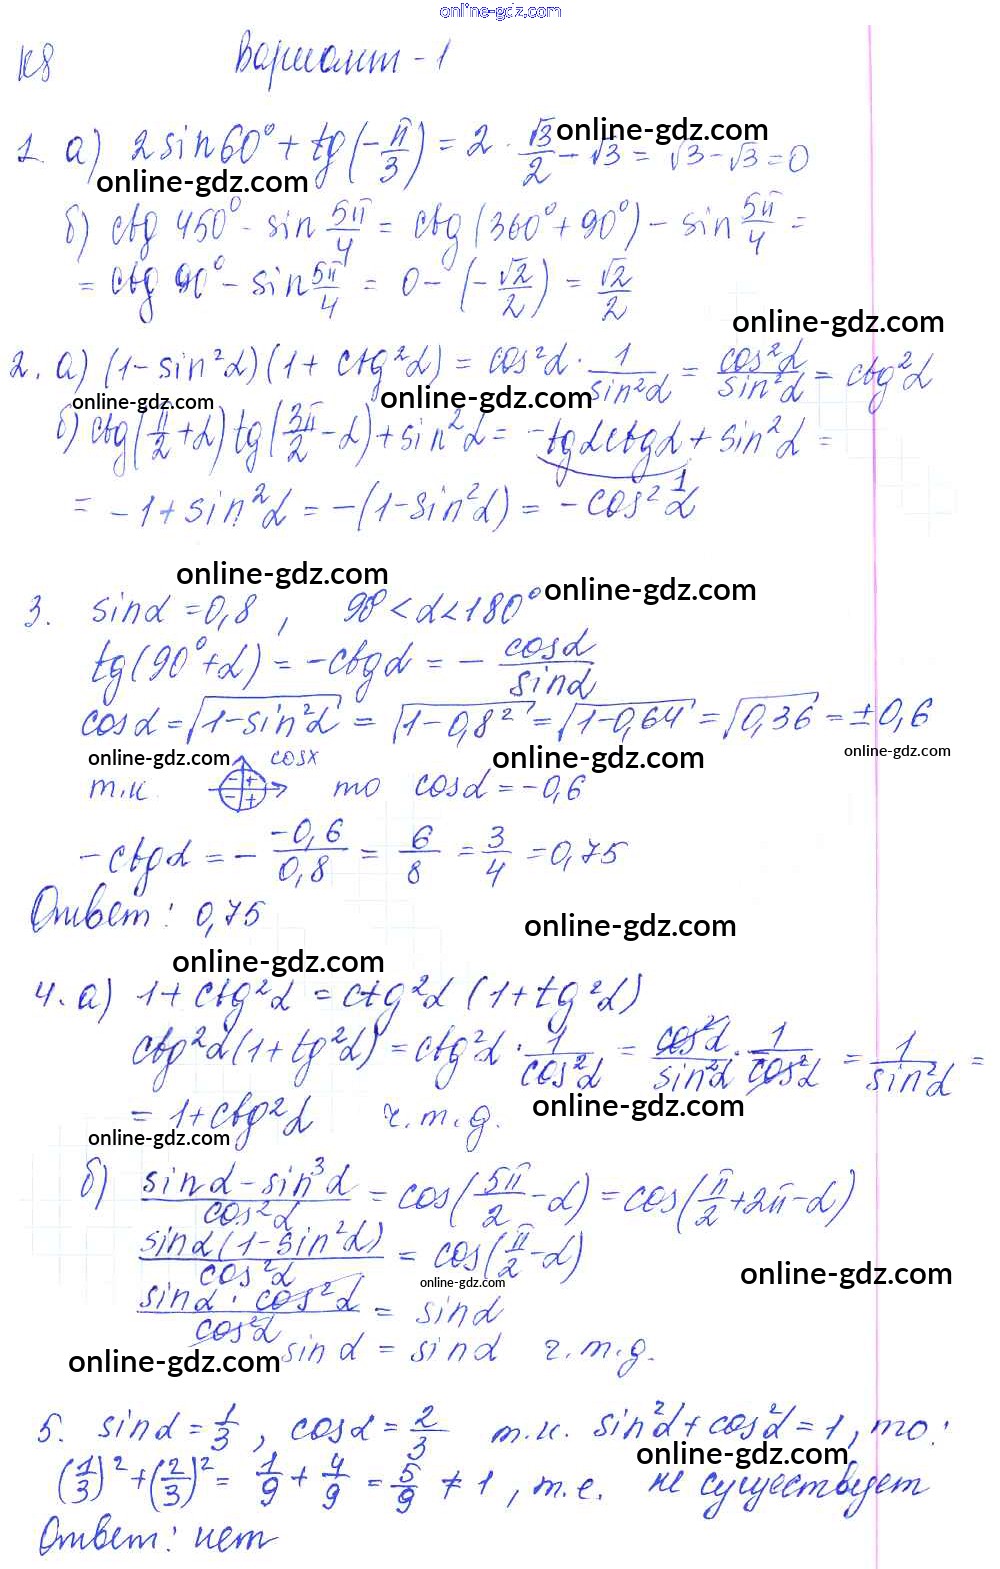 online-gdz.com
К8 Вариант - 1
1. а) 2 sin60° + tg(-π/3) = 2 · √3/2 - √3 = √3 - √3 = 0
online-gdz.com
online-gdz.com
б) ctg 450° - sin 5π/4 = ctg(360° + 90°) - sin 5π/4 =
= ctg 90° - sin 5π/4 = 0 - (-√2/2) = √2/2
online-gdz.com
2. а) (1 - sin²α)(1 + ctg²α) = cos²α · 1/sin²α = cos²α/sin²α = ctg²α
online-gdz.com
online-gdz.com
б) ctg(π/2 + α) tg(3π/2 - α) + sin²α = -tgα ctgα + sin²α =
1
= -1 + sin²α = -(1 - sin²α) = -cos²α
online-gdz.com
online-gdz.com
3. sinα = 0,8 , 90° < α < 180°
tg(90° + α) = -ctgα = - cosα/sinα
cosα = √(1 - sin²α) = √(1 - 0,8²) = √(1 - 0,64) = √0,36 = ±0,6
online-gdz.com
online-gdz.com
online-gdz.com
cosx
т.к. - + - + то cosα = -0,6
-ctgα = - -0,6/0,8 = 6/8 = 3/4 = 0,75
Ответ: 0,75
online-gdz.com
online-gdz.com
4. а) 1 + ctg²α = ctg²α (1 + tg²α)
ctg²α(1 + tg²α) = ctg²α · 1/cos²α = cos²α/sin²α · 1/cos²α = 1/sin²α =
= 1 + ctg²α ч.т.д.
online-gdz.com
online-gdz.com
б) (sinα - sin³α)/cos²α = cos(5π/2 - α) = cos(π/2 + 2π - α)
sinα(1 - sin²α)/cos²α = cos(π/2 - α)
online-gdz.com
online-gdz.com
sinα · cos²α/cos²α = sinα
sinα = sinα ч.т.д.
online-gdz.com
5. sinα = 1/3 , cosα = 2/3 т.к. sin²α + cos²α = 1, то:
online-gdz.com
(1/3)² + (2/3)² = 1/9 + 4/9 = 5/9 ≠ 1, т.е. не существует
Ответ: нет
online-gdz.com
online-gdz.com